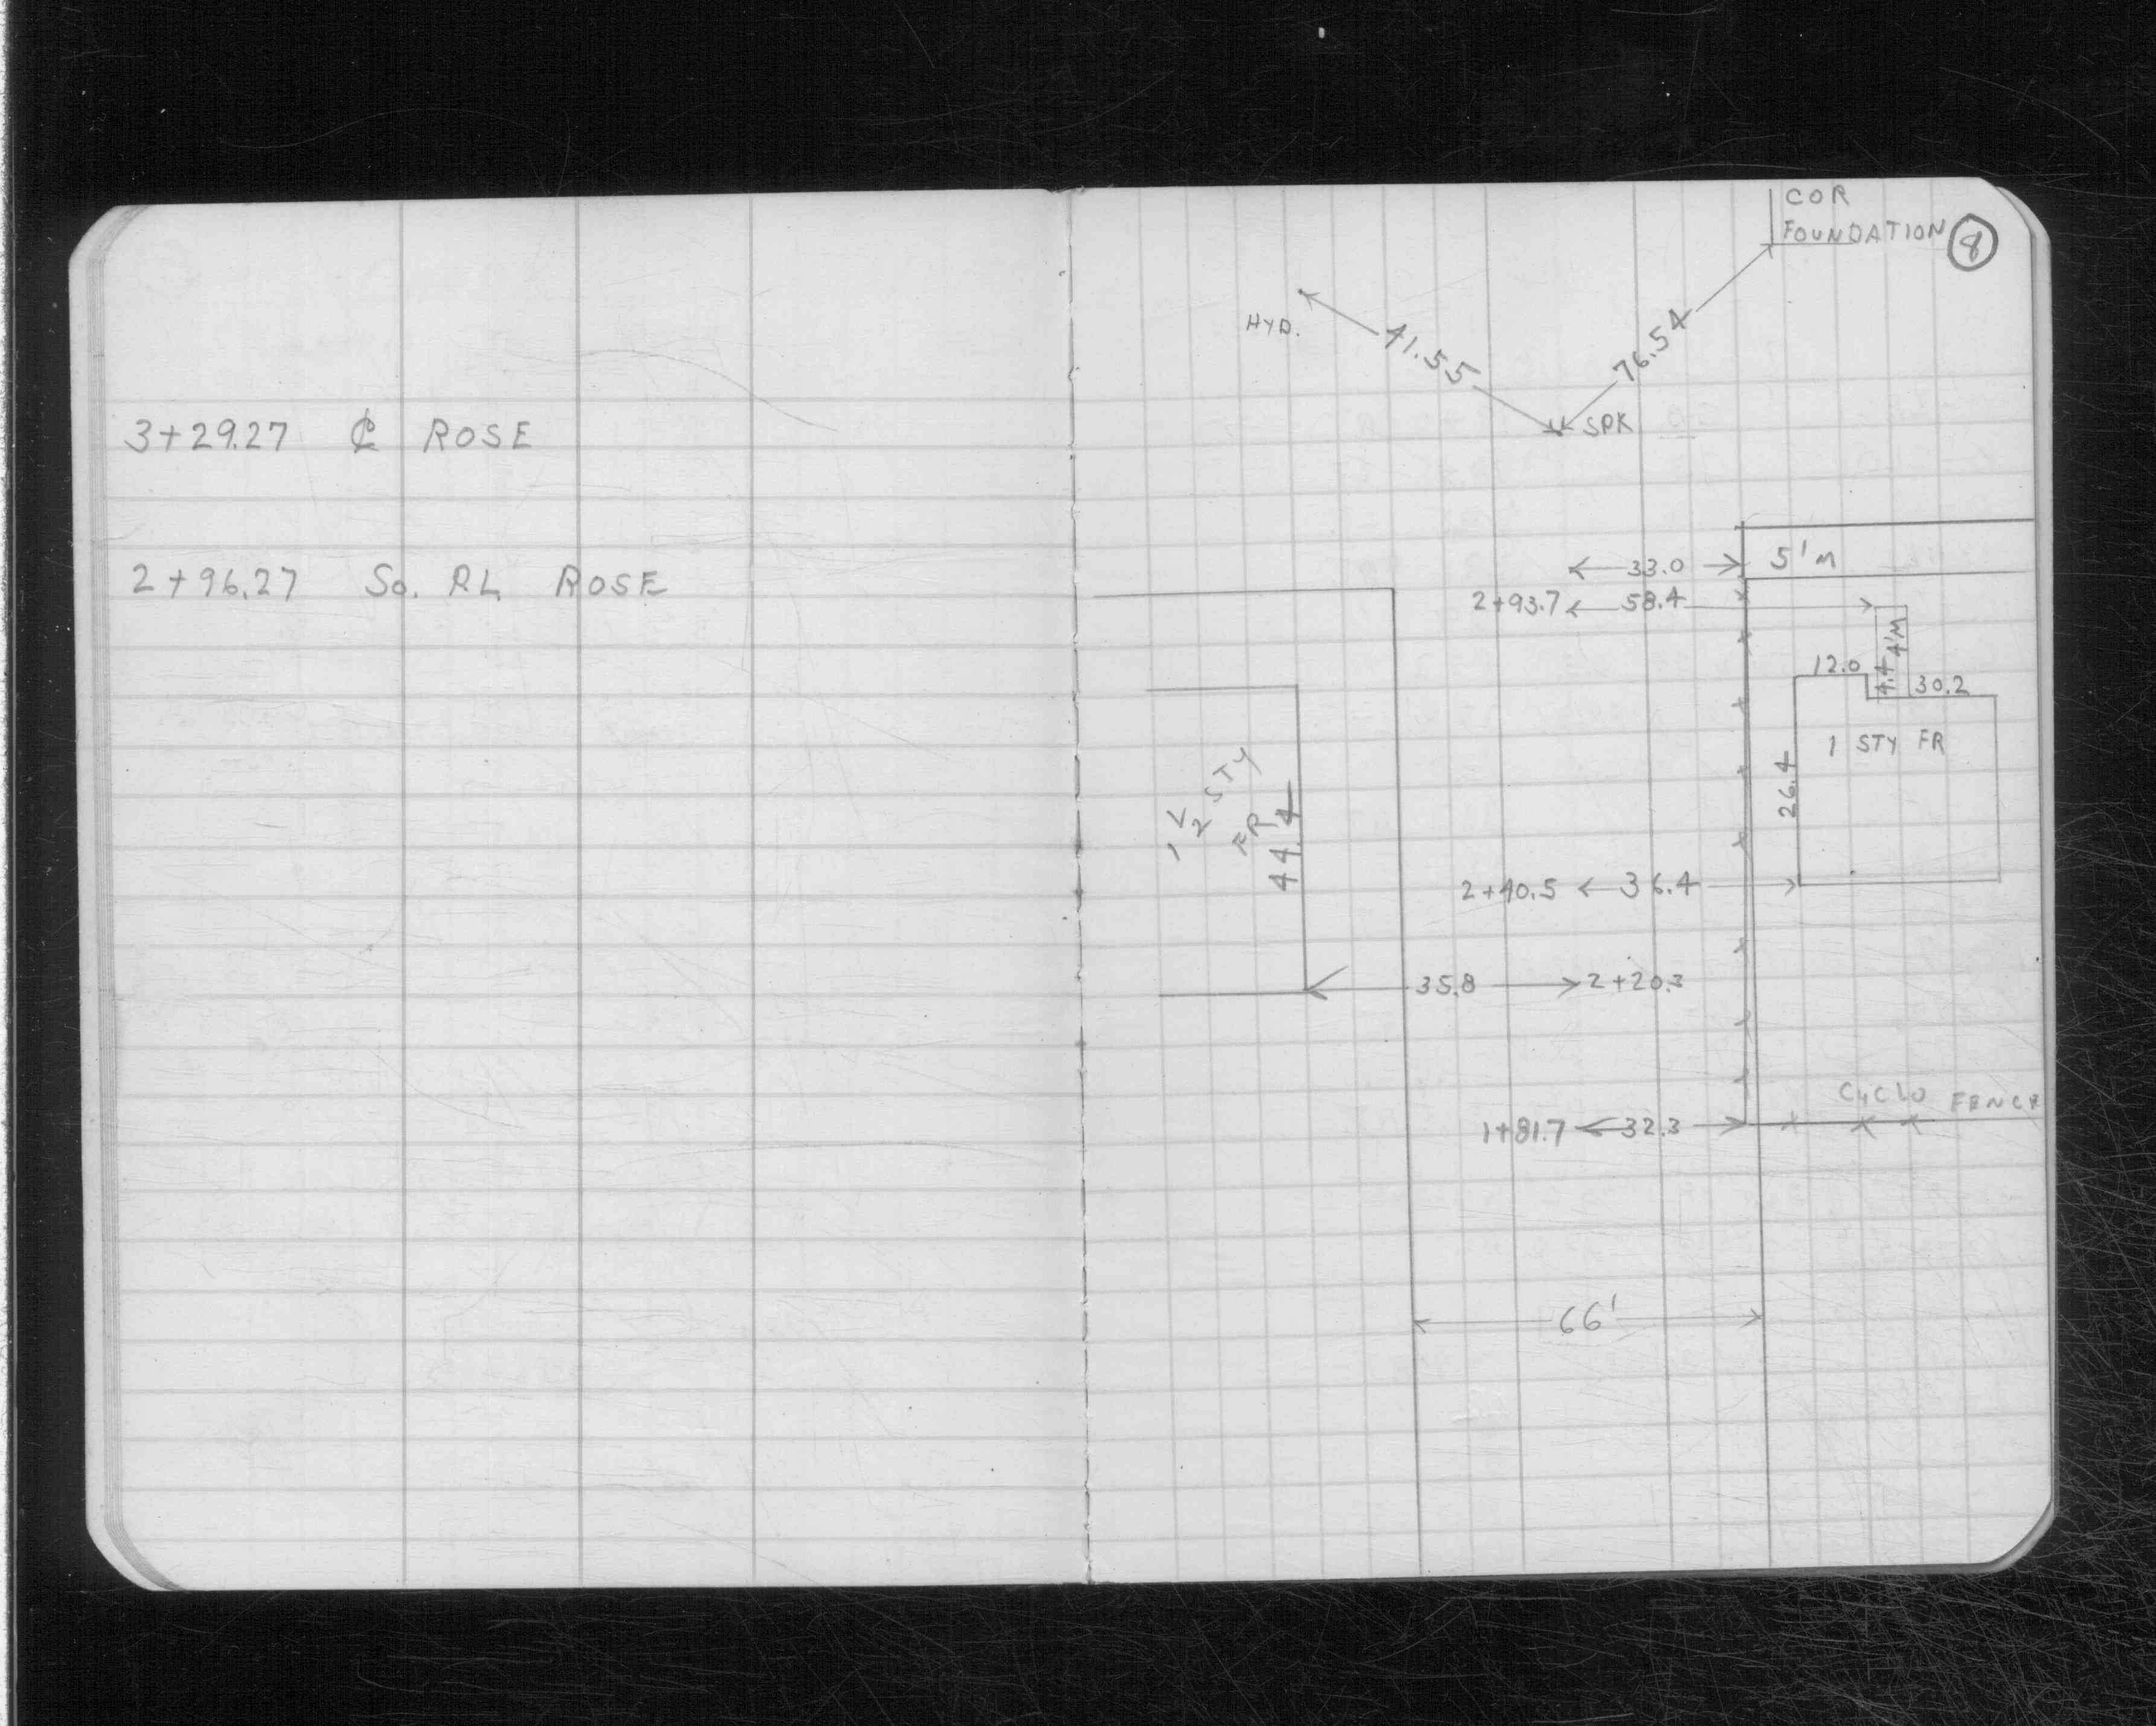 3+29.27 ℄ ROSE
2+96.27 So. RL ROSE
COR
FOUNDATION 8
HYD.
41.55
76.54
SPK
33.0 5'M
2+93.7 58.4
4'M
12.0 4.4 30.2
1 STY FR
26.4
1 1/2 STY
FR
44.4
2+40.5 36.4
35.8 2+20.3
CYCLO FENCE
1+81.7 32.3
66'